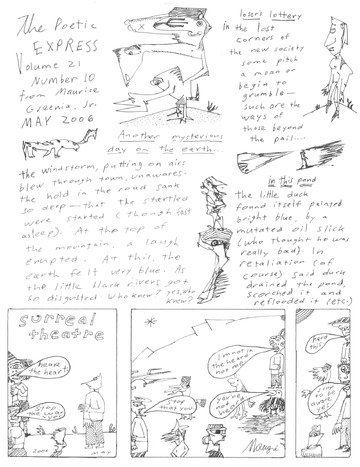 The Poetic
EXPRESS
Volume 21
Number 10
from Maurice
Greenia, Jr.
MAY 2006
loser's lottery
in the lost
corners of
the new society
some pitch
a moan or
begin to
grumble—
such are the
ways of
those beyond
the pail....
Another mysterious
day on the earth...
the windstorm, putting on airs
blew through town, unawares.
the hold in the road sank
so deep—that the startled
were started (though fast
asleep). At the top of
the mountain, a laugh
erupted. At this, the
earth felt very blue. As
the little black rivers got
so disgusted. Who knew? yes, who
knew?
in this pond
the little duck
found itself painted
bright blue, by a
mutated oil slick
(who thought he was
really bad). In
retaliation (of
course) said duck
drained the pond,
scorched it and
reflooded it (etc.)
surreal
theatre
hear the
heart
stop the
2006
MAY
I'm not in
the heart
not me
stop that
you
you're not
hero
this